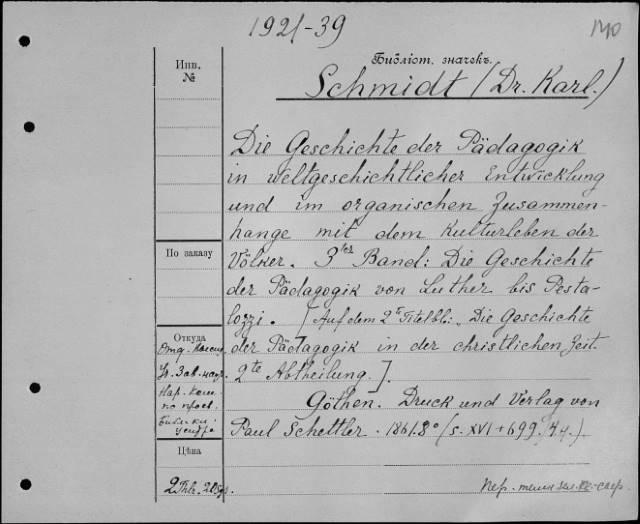 1921-39
140
Библіот. значекъ.
Schmidt (Dr. Karl.)
Инв.
№
Die Geschichte der Pädagogik
in weltgeschichtlicher Entwicklung
und im organischen Zusammen-
hange mit dem Kulturleben der
Völker. 3ter Band: Die Geschichte
der Pädagogik von Luther bis Pesta-
lozzi. [Auf dem 2n Titelbl.: Die Geschichte
der Pädagogik in der christlichen Zeit.
2te Abtheilung.].
Göthen. Druck und Verlag von
Paul Schettler. 1861. 8° (S. XVI + 699
По заказу
Откуда
Отд.
Зав.
Нар. Ком.
по просв.
Цѣна
2 Thlr.
Пер.